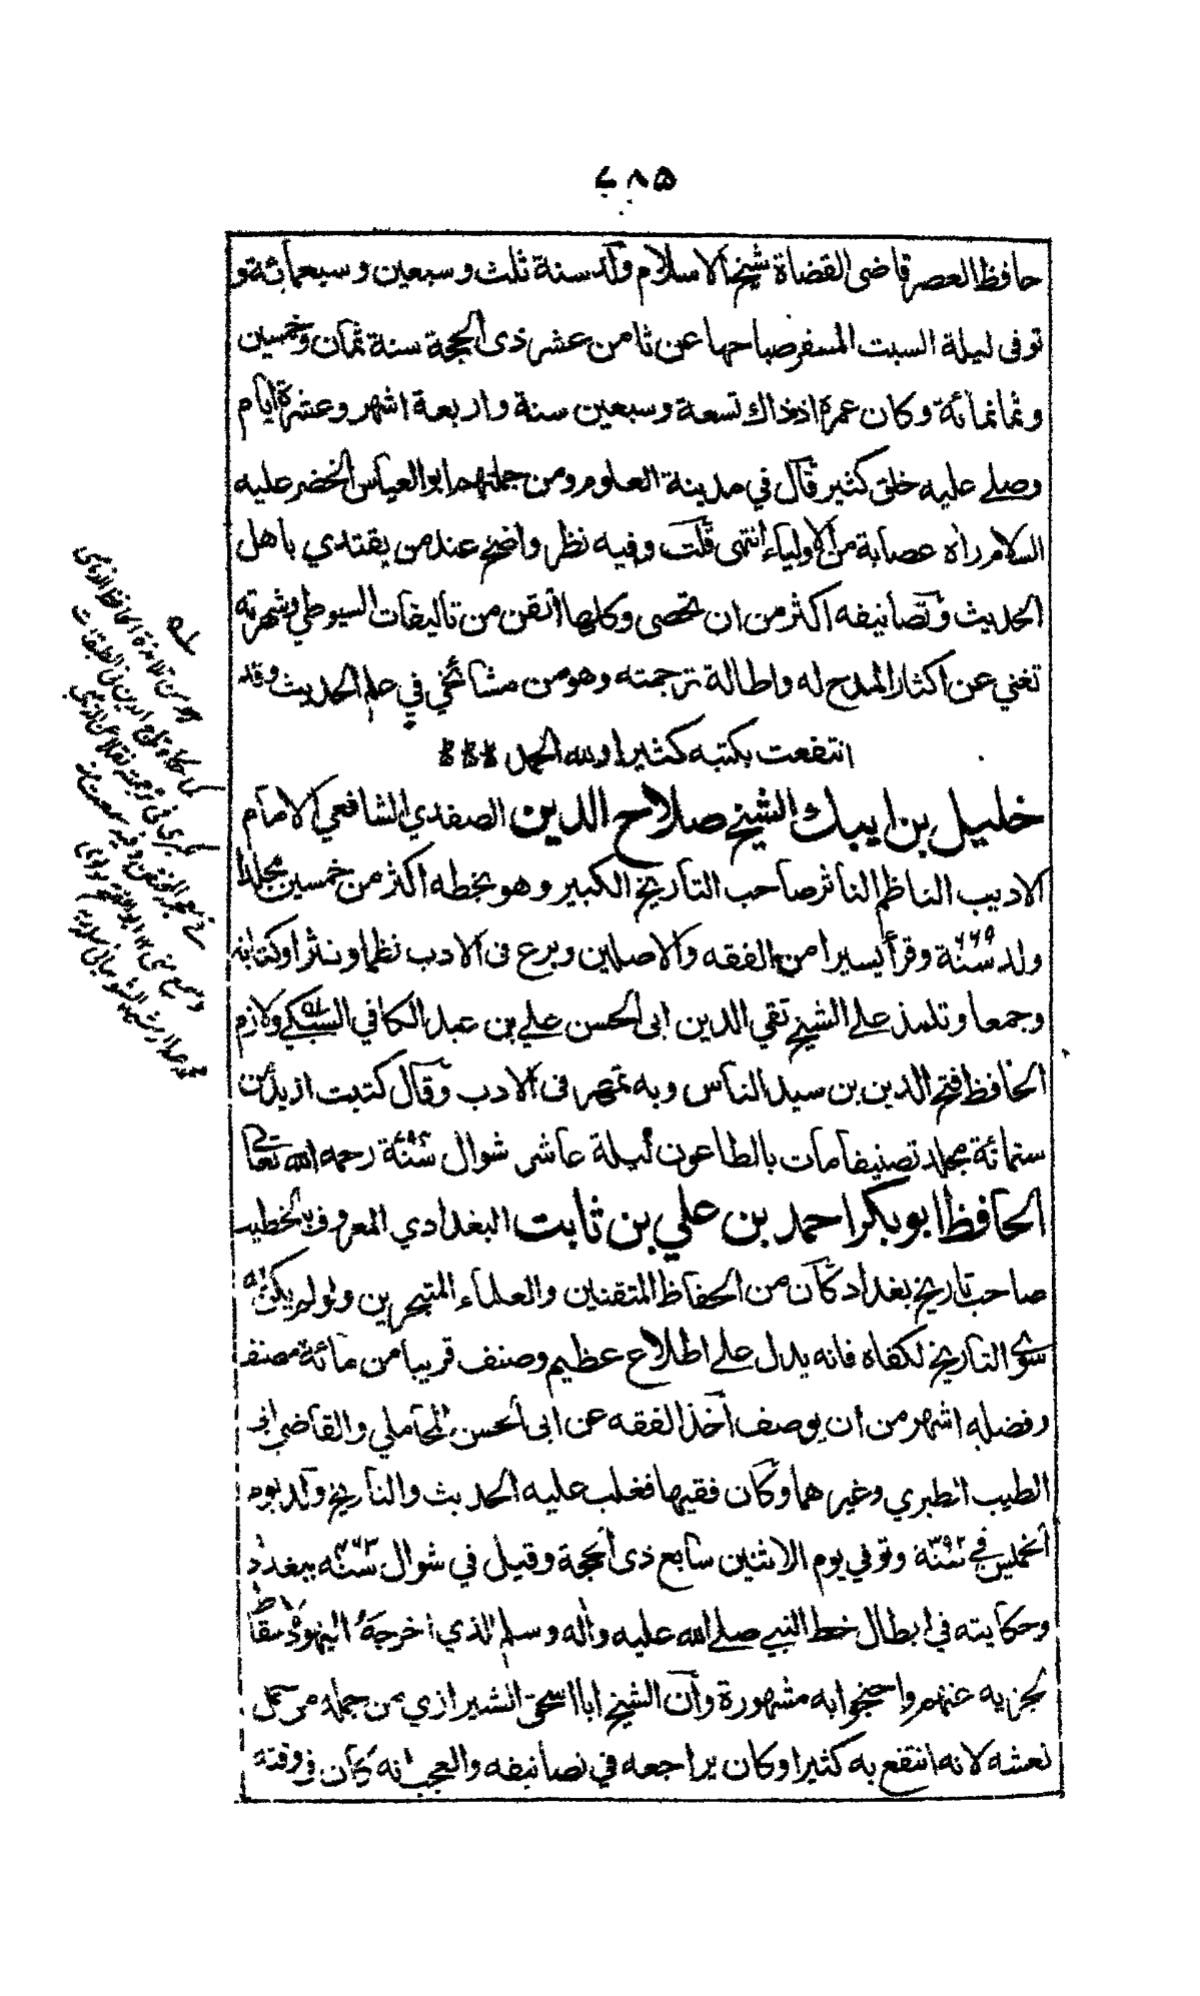 ٧٨٥
حافظ العصر قاضى القضاة شيخ الاسلام ولد سنة ثلث وسبعين وسبعمائة و
توفى ليلة السبت المسفر صباحها عن ثامن عشر ذى الحجة سنة ثمان وخمسين
وثمانمائة وكان عمره اذ ذاك تسعة وسبعين سنة واربعة اشهر وعشرة ايام
وصلے عليه خلق كثير قال في مدينة العلوم ومن جملتهم ابو العباس الخضر عليه
السلام راه عصابة من الاولياء انتهى قلت وفيه نظر واضح عند من يقتدي باهل
الحديث وتصانيفه اكثر من ان تحصى وكلها اتقن من تاليفات السيوطي وشهرته
تغني عن اكثار المدح له واطالة ترجمته وهو من مشائخي في علم الحديث وقد
انتفعت بكتبه كثيرا ولله الحمد
خليل بن ايبك الشيخ صلاح الدين الصفدي الشافعي الامام
الاديب الناظم الناثر صاحب التاريخ الكبير وهو بخطه اكثر من خمسين مجلدا
ولد سنة ٦٦٥ وقرأ يسيرا من الفقه والاصلين وبرع فى الادب نظما ونثرا وكتابة
وجمعا وتلمذ على الشيخ تقي الدين ابى الحسن علي بن عبد الكافي السبكي ولازم
الحافظ فتح الدين بن سيد الناس وبه تمهر فى الادب وقال كتبت ازيد من
ستمائة مجلد تصنيفا مات بالطاعون ليلة عاشر شوال سنة رحمه الله تعالى
الحافظ ابو بكر احمد بن علي بن ثابت البغدادي المعروف بالخطيب
صاحب تاريخ بغداد كان من الحفاظ المتقنين والعلماء المتبحرين ولو لم يكن له
سوى التاريخ لكفاه فانه يدل على اطلاع عظيم وصنف قريبا من مائة مصنف
وفضله اشهر من ان يوصف اخذ الفقه عن ابى الحسن المحاملي والقاضي ابى
الطيب الطبري وغيرهما وكان فقيها فغلب عليه الحديث والتاريخ ولد يوم
الخميس في سنة ٣٩٢ وتوفي يوم الاثنين سابع ذى الحجة وقيل في شوال سنة ٤٦٣ ببغداد
وحكايته في ابطال خط النبي صلے الله عليه وأله وسلم الذي اخرجه اليهود باسقاط
الجزية عنهم واحتجوا به مشهورة وان الشيخ ابا اسحق الشيرازي من جملة من حمل
نعشه لانه انتفع به كثيرا وكان يراجعه في تصانيفه والعجب انه كان فى وقته